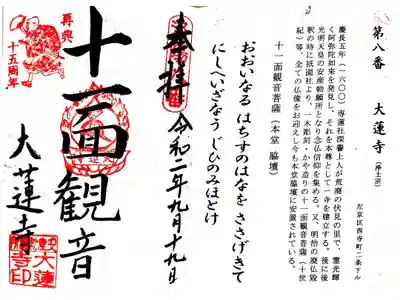 第八番　大蓮寺（浄土宗）
左京区西寺町二条下ル
慶長五年（一六〇〇）専蓮社深誉上人が荒廃の伏見の里で、霊光輝
く阿弥陀如来を発見し、それを本尊として一寺を建立する。後に後
光明天皇の安産勅願所となり念仏信仰を集める。又、明治の廃仏毀
釈の時に祇園社より、一木彫刻・かや造りの十一面観音菩薩（十世
紀）等、全ての仏像をお迎えし今も本堂脇壇に安置されている。
十一面観音菩薩（本堂　脇壇）
おおいなる はちすのはなを ささげきて
にしへいざなう じひのみほとけ
奉拝 令和二年九月十九日
十一面観音
大蓮寺
再興
十五周年